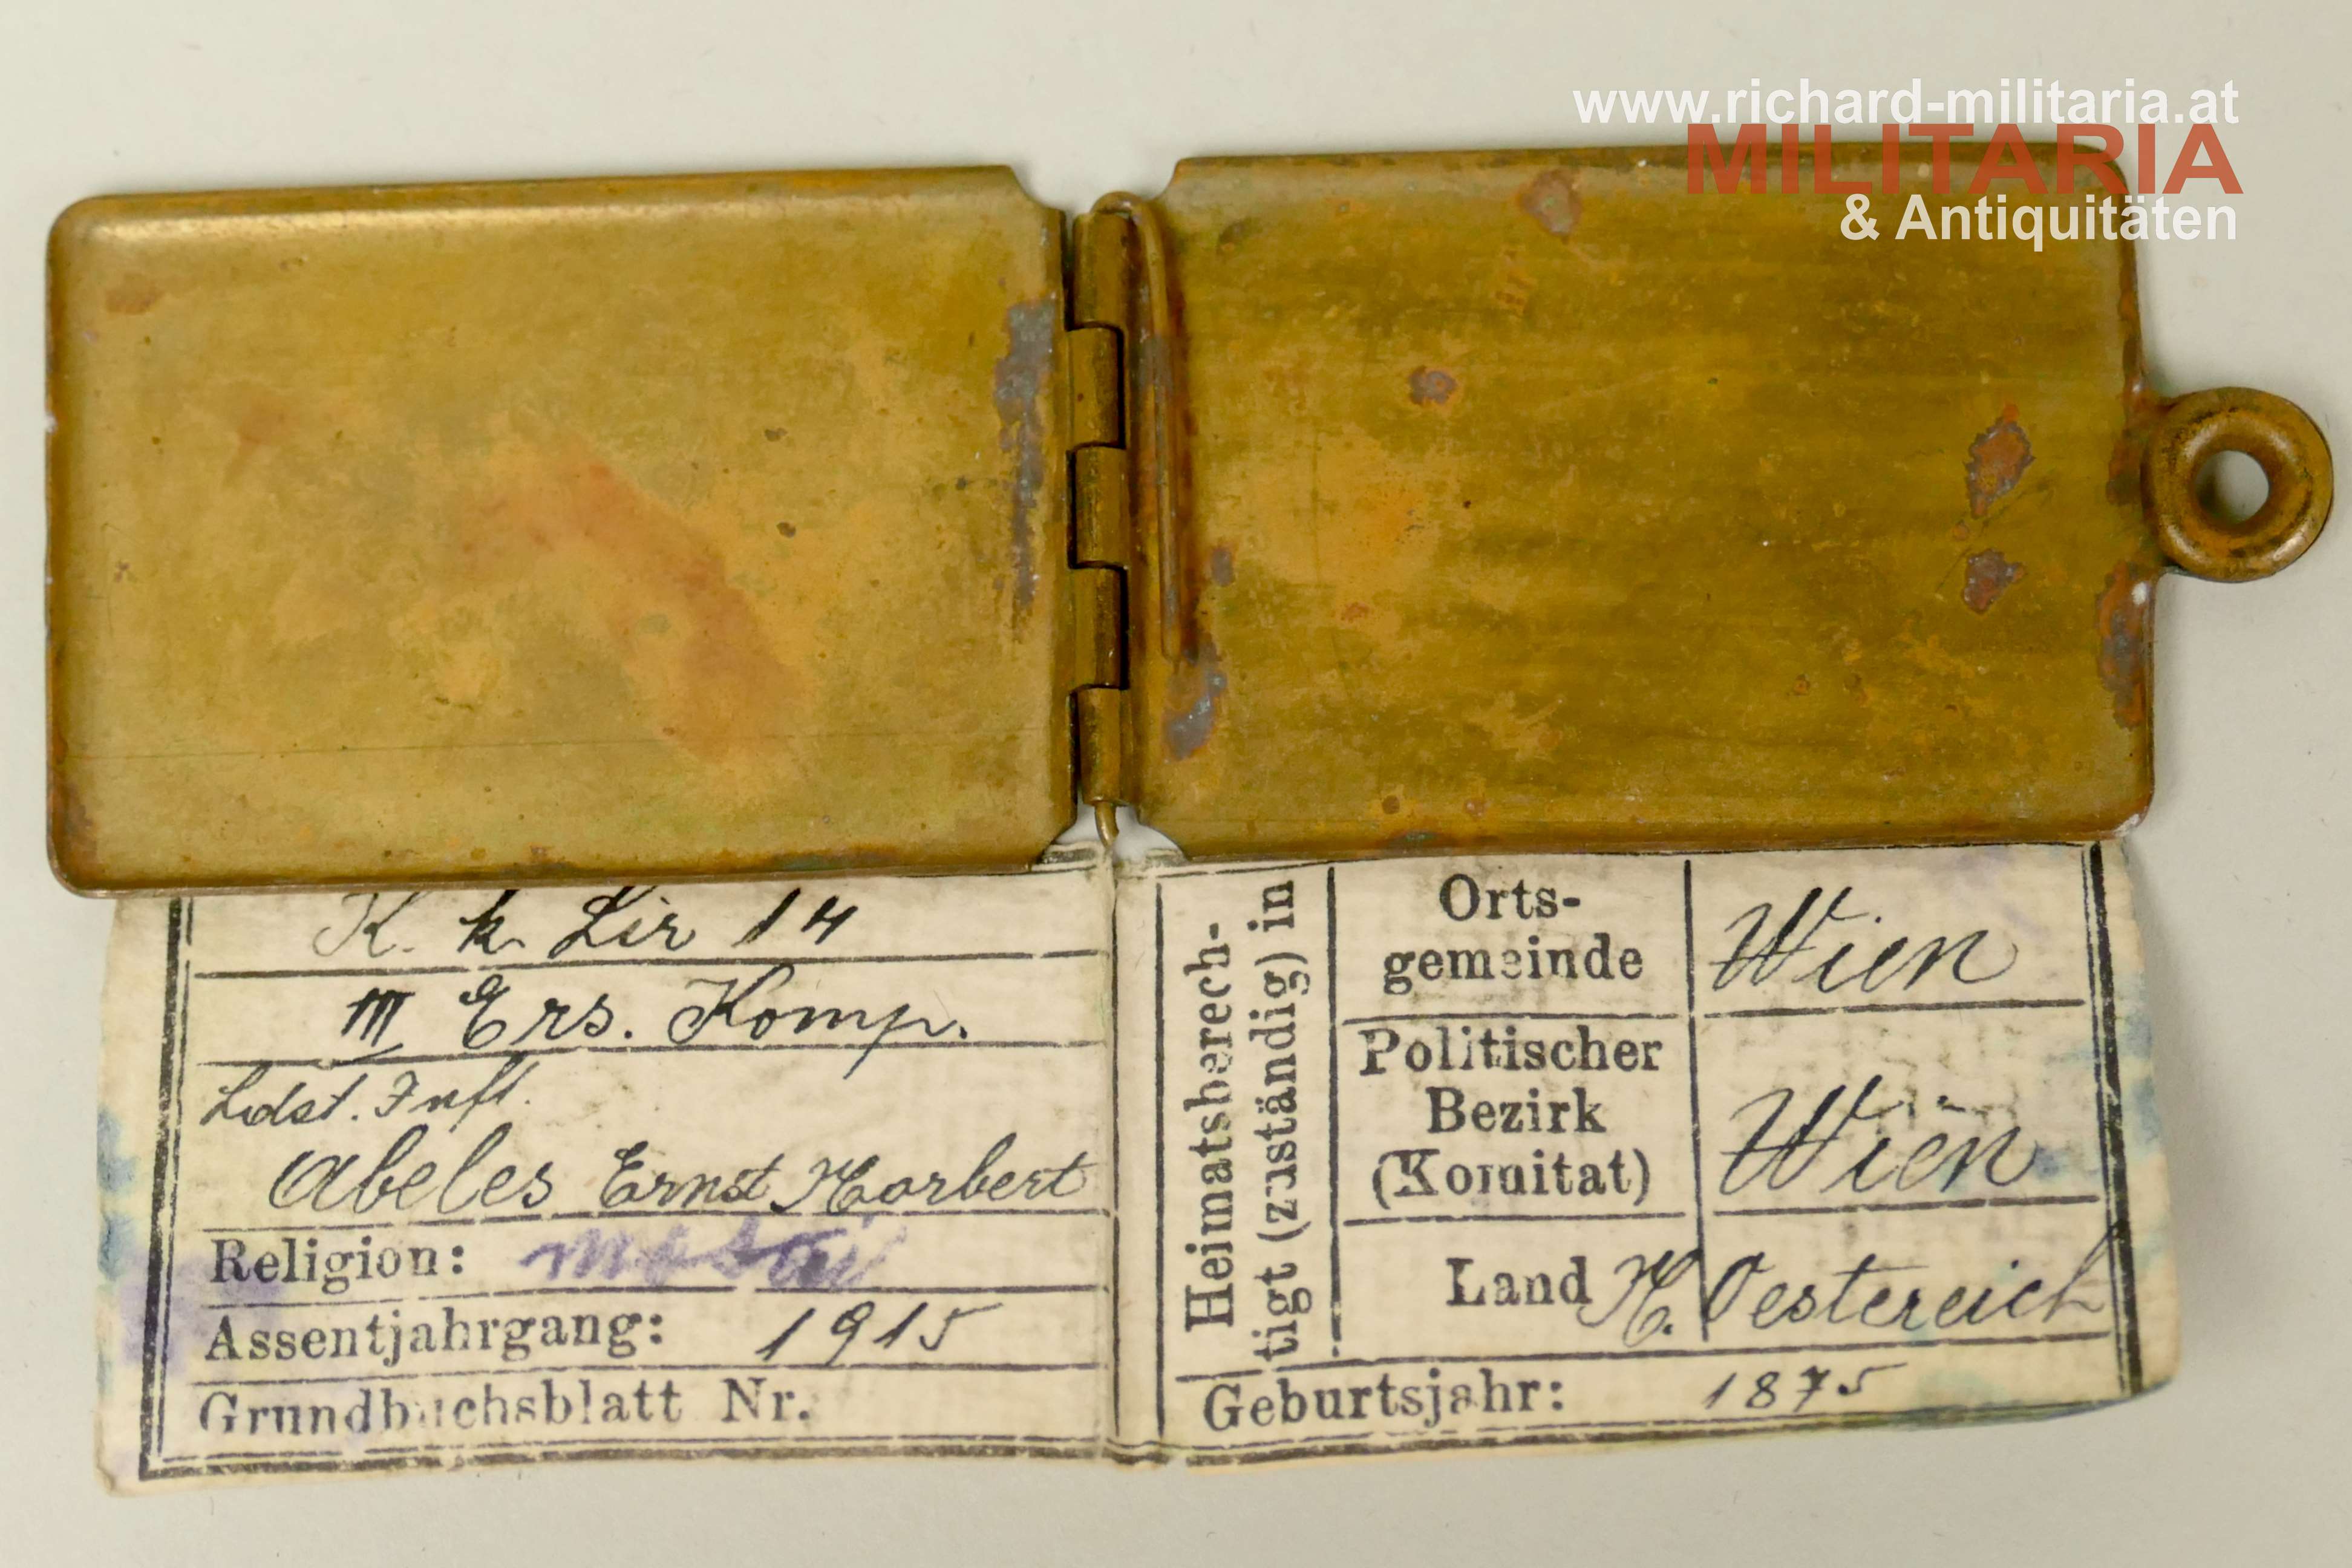 www.richard-militaria.at
MILITARIA
& Antiquitäten
K. k. Lir 14
III Ers. Komp.
Ldst. Inft.
Abeles Ernst Norbert
Religion: mosai
Assentjahrgang: 1915
Grundbuchsblatt Nr.
Heimatsberech-
tigt (zuständig) in
Orts-
gemeinde Wien
Politischer
Bezirk
(Komitat) Wien
Land N. Oestereich
Geburtsjahr: 1875